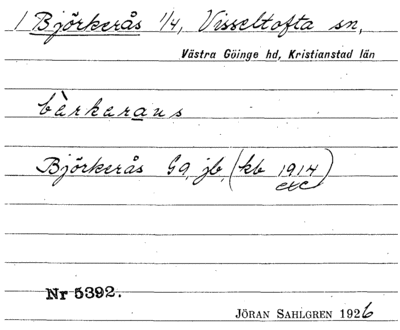 1 Björkerås 1/4, Visseltofta sn,
Västra Göinge hd, Kristianstad län
bèrkaraus
Björkerås G9, jb, (kb 1914)
exc
Nr 5392.
JÖRAN SAHLGREN 1926